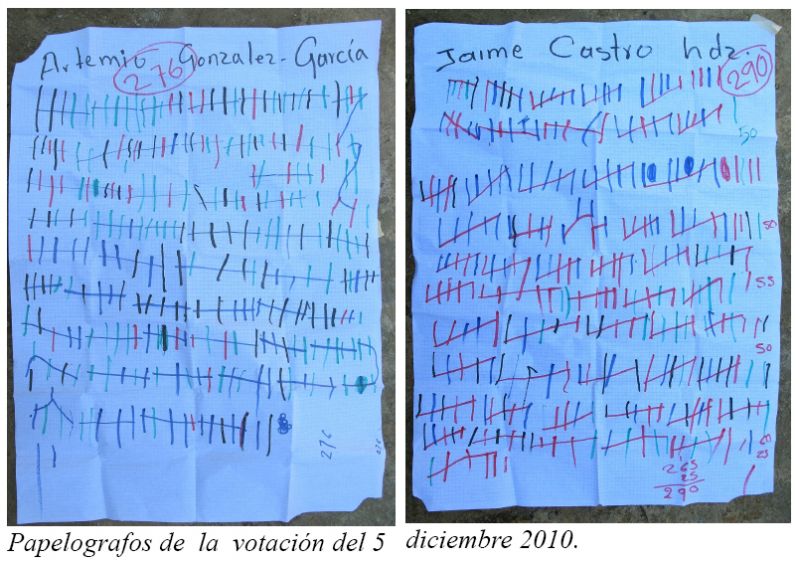 Artemio Gonzalez-García
276
276
Jaime Castro hdz
290
50
50
55
50
265
25
290
Papelografos de la votación del 5 diciembre 2010.